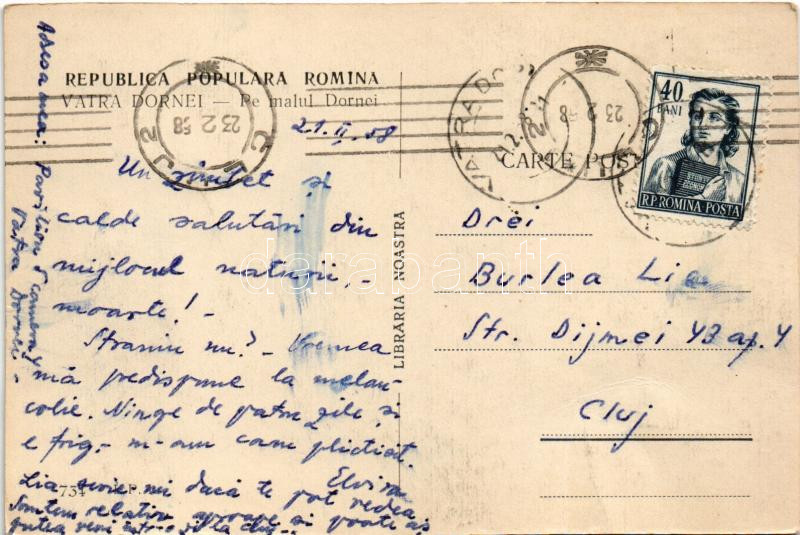 REPUBLICA POPULARA ROMINA
VATRA DORNEI — Pe malul Dornei
21. II. 58
Un zîmbet și
calde salutări din
mijlocul naturii.-
moarte! -
Straniu nu? - Vremea
mă predispune la melan-
colie. Ninge de patru zile și
e frig.- m-am cam plictisit.
Elvira
Lia scrie-mi dacă te pot vedea
Sîntem relativ aproape și poate aș
putea veni într-o zi la Cluj.-
Adresa mea: Pavilion 5 camera 4
Vatra Dornei -
734
LIBRĂRIA NOASTRA
CARTE POȘT
VATRA DORNEI
CLUJ 2
23 2 58
23 2 58
40
BANI
R.P. ROMINA POSTA
Drei
Burlea Lia
Str. Dijmei 43 ap. 4
Cluj
darabanth